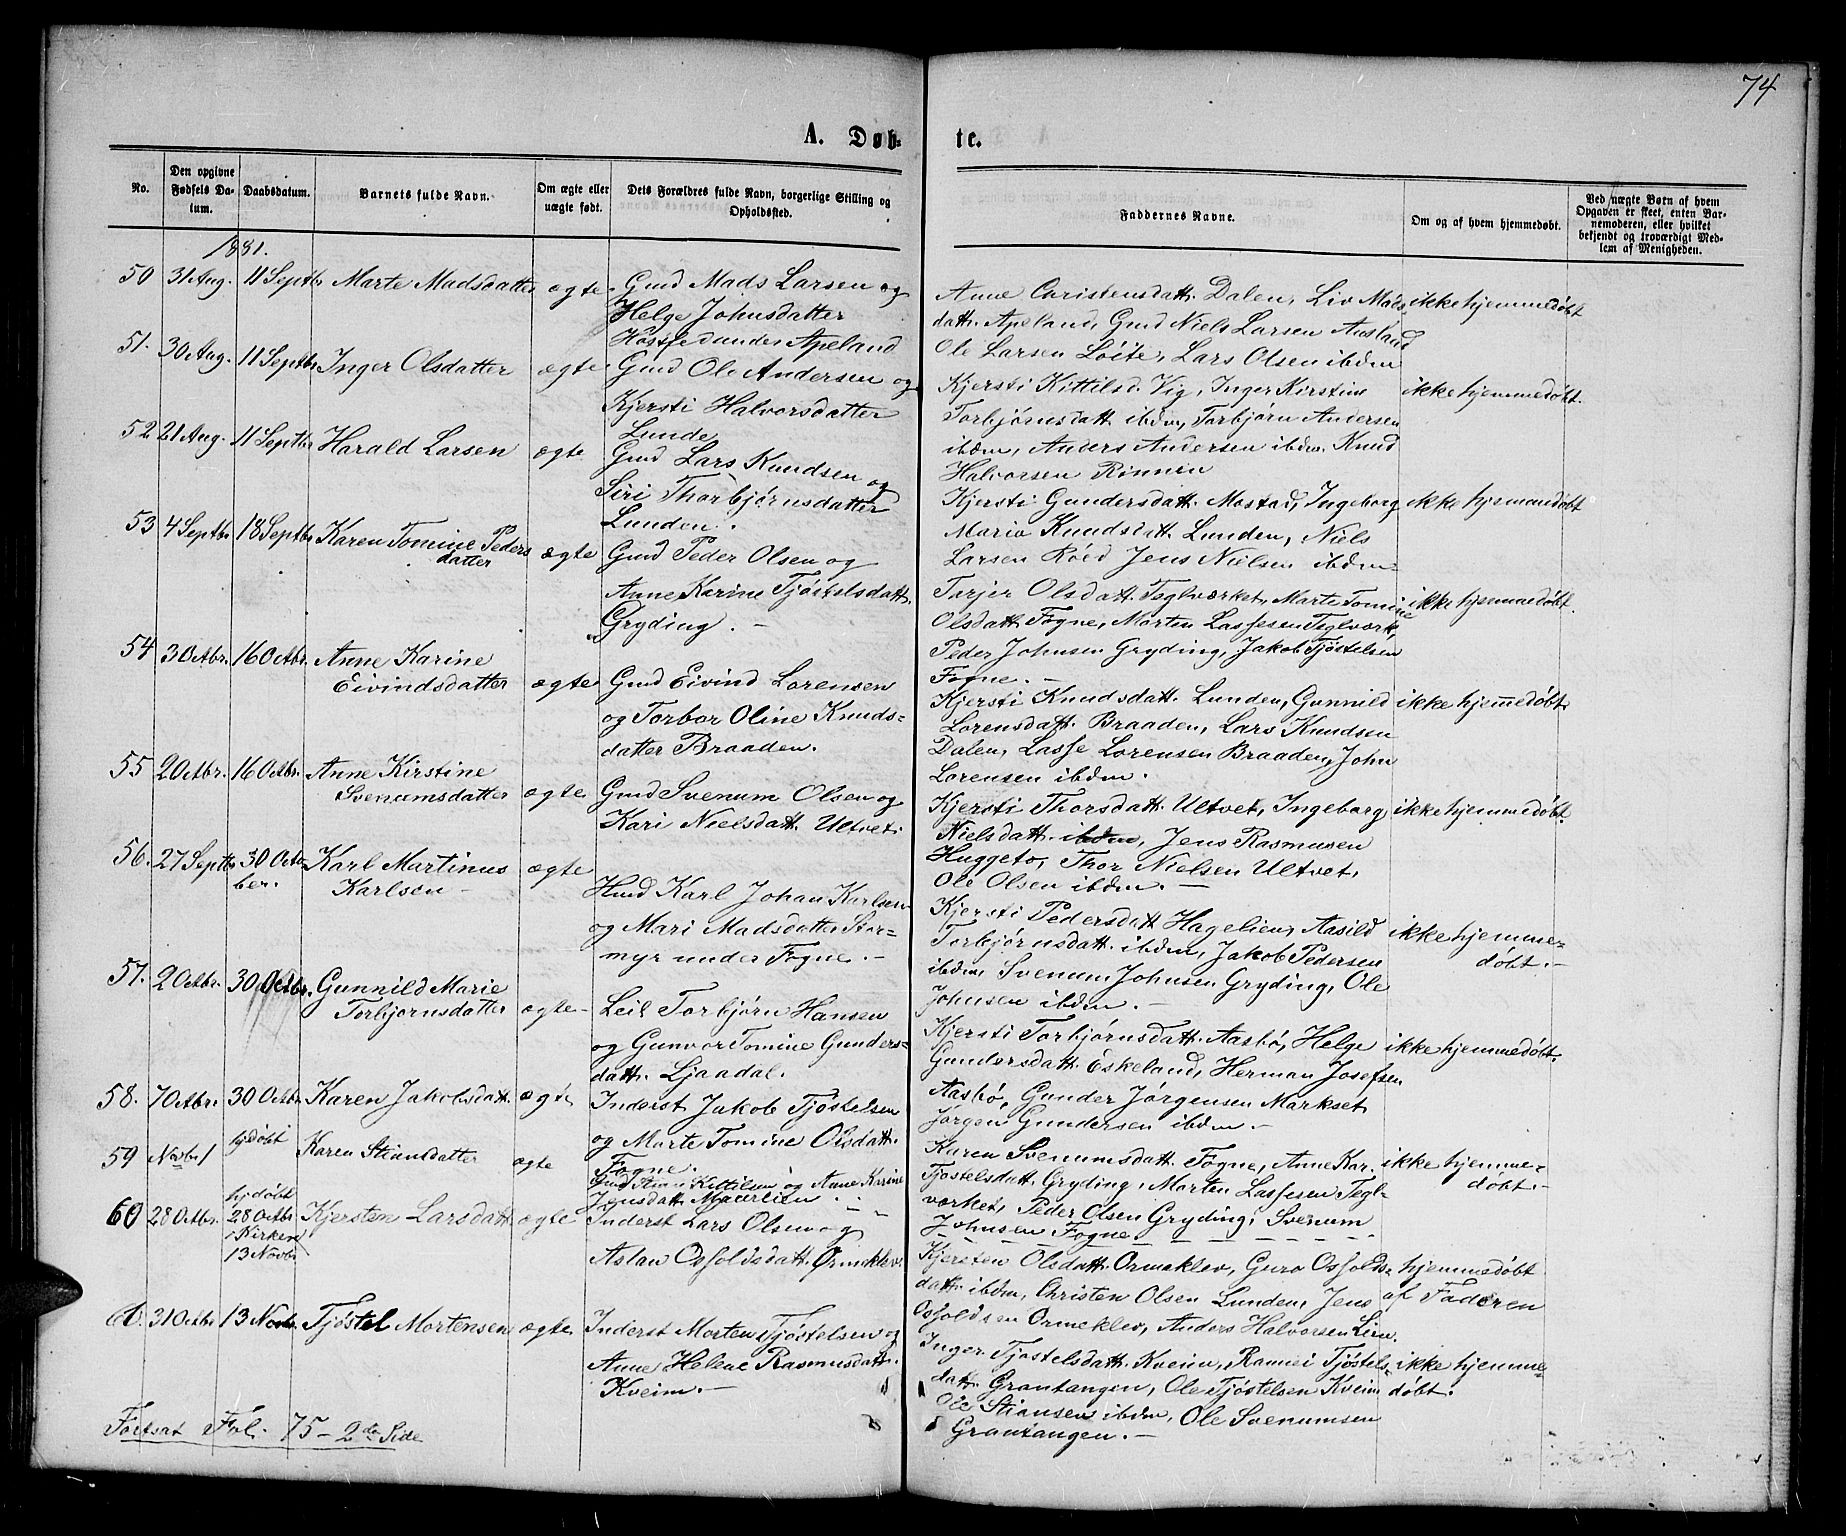 74
A. Døb-
te.
No.
Den opgivne Fødsels Da-tum.
Daabsdatum.
Barnets fulde Navn.
Om ægte eller uægte født.
Dets Forældres fulde Navn, borgerlige Stilling og Opholdssted.
Faddernes Navne.
Om og af hvem hjemmedøbt.
Ved uægte Børn af hvem Opgaven er skeet, enten Bar-nemoderen, eller hvilket bekjendt og troværdigt Med-lem af Menigheden.
1881.
50 31 Aug. 11 Septbr Marte Madsdatter ægte Gmd Mads Larsen og
Helge Johnsdatter
under Apeland
Anne Christensdatt. Dalen, Liv Mads
datt. Apeland, Gmd Niels Larsen Ausland
Ole Larsen Løite, Lars Olsen ibdm
ikke hjemmedøbt
51. 30 Aug. 11 Septbr Inger Olsdatter ægte Gmd Ole Andersen og
Kjersti Halvorsdatter
Lunde
Kjersti Kittilsd. Vig, Inger Kirstine
Torbjørnsdatt ibdm, Torbjørn Andersen
ibdm, Anders Andersen ibdm. Knud
Halvorsen Rønnen
ikke hjemmedøbt.
52 21 Aug. 11 Septbr Harald Larsen ægte Gmd Lars Knudsen og
Siri Thorbjørnsdatter
Lunden.
Kjersti Gundersdatt. Mostad, Ingeborg
Maria Knudsdatt. Lunden, Niels
Larsen Røed Jens Nielsen ibdm
ikke hjemmedøbt
53 4 Septbr 18 Septbr Karen Tomine Peders
datter
ægte Gmd Peder Olsen og
Anne Karine Tjøstelsdatt.
Gryding. -
Torjer Olsdatt. Teglværket, Marte Tomine
Olsdatt. Fogne, Morten Lassesen Teglværk,
Peder Johnsen Gryding, Jakob Tjøstelsen
Fogne. -
ikke hjemmedøbt.
54 3 Octbr. 16 Octbr. Anne Karine
Eivindsdatter
ægte Gmd Eivind Lorensen
og Torbor Oline Knuds-
datter Braaden.
Kjersti Knudsdatt. Lunden, Gunnild
Lorensdatt. Braaden, Lars Knudsen
Dalen, Lasse Lorensen Braaden, John
Lorensen ibdm.
ikke hjemmedøbt
55 2 Octbr. 16 Octbr. Anne Kirstine
Svenumsdatter
ægte Gmd Svenum Olsen og
Kari Nielsdatt. Ultvet.
Kjersti Thorsdatt. Ultvet, Ingeborg
Nielsdatt. ibdm, Jens Rasmusen
Huggeto, Thor Nielsen Ultvet,
Ole Olsen ibdm. -
ikke hjemmedøbt.
56. 27 Septbr 30 Octo
ber.
Karl Martinus
Karlsen -
ægte Hmd Karl Johan Karlsen
og Mari Madsdatter Stor-
myr under Fogne. -
Kjersti Pedersdatt Hagelien, Aasild
Torbjørnsdatt. ibdm, Jakob Pedersen
ibdm, Svenum Johnsen Gryding, Ole
Johnsen ibdm. -
ikke hjemme-
døbt. -
57. 2 Octbr. 30 Octbr. Gunnild Marie
Torbjornsdatter
ægte - Leil Torbjørn Hansen
og Gunvor Tomine Gunders-
datt. Ljaadal.
Kjersti Torbjørnsdatt. Aasbø, Helge
Gundersdatt. Eskeland, Herman Josefsen
Aasbø, Gunder Jørgensen Markset,
Jørgen Gundersen ibdm. -
ikke hjemmedøbt.
58. 7 Octbr. 30 Octbr Karen Jakobsdatt. ægte Inderst Jakob Tjøstelsen
og Marte Tomine Olsdatt.
Fogne.
Karen Svenumsdatt. Fogne, Anne Kar.
Tjøstelsdatt. Gryding, Morten Lassesen Tegl-
værket, Peder Olsen Gryding, Svenum
Johnsen Fogne
ikke hjemme-
døbt. -
59 Novbr 1 hjdøbt Karen Stiansdatter ægte Gmd Stian Kittilsen og Anne Karine
Jensdatt.
60 28 Octbr. hjdøbt
28 Octbr
i Kirken
13 Novbr
Kjersten Larsdatt ægte Inderst Lars Olsen og
Aslau Osfoldsdatt. Ørmeklev.
Kjersten Olsdatt. Ormeklev, Guro Osfolds-
datt. ibdm, Christen Olsen Lunden, Jens
Osfoldsen Ormeklev, Anders Halvorsen Lien.
hjemmedøbt
af Faderen
61. 31 Octbr 13 Novbr. Tjøstel Mortensen ægte Inderst Morten Tjøstelsen og
Anne Helene Rasmusdatt.
Kveim. -
Inger Tjøstelsdatt. Kveim, Rannei Tjøstels-
datt. Grantangen, Ole Tjøstelsen Kveim
Ole Stiansen ibdm, Ole Svenumsen
Grantangen. -
ikke hjemme-
døbt.
Fortsat Fol. 75 - 2den Side